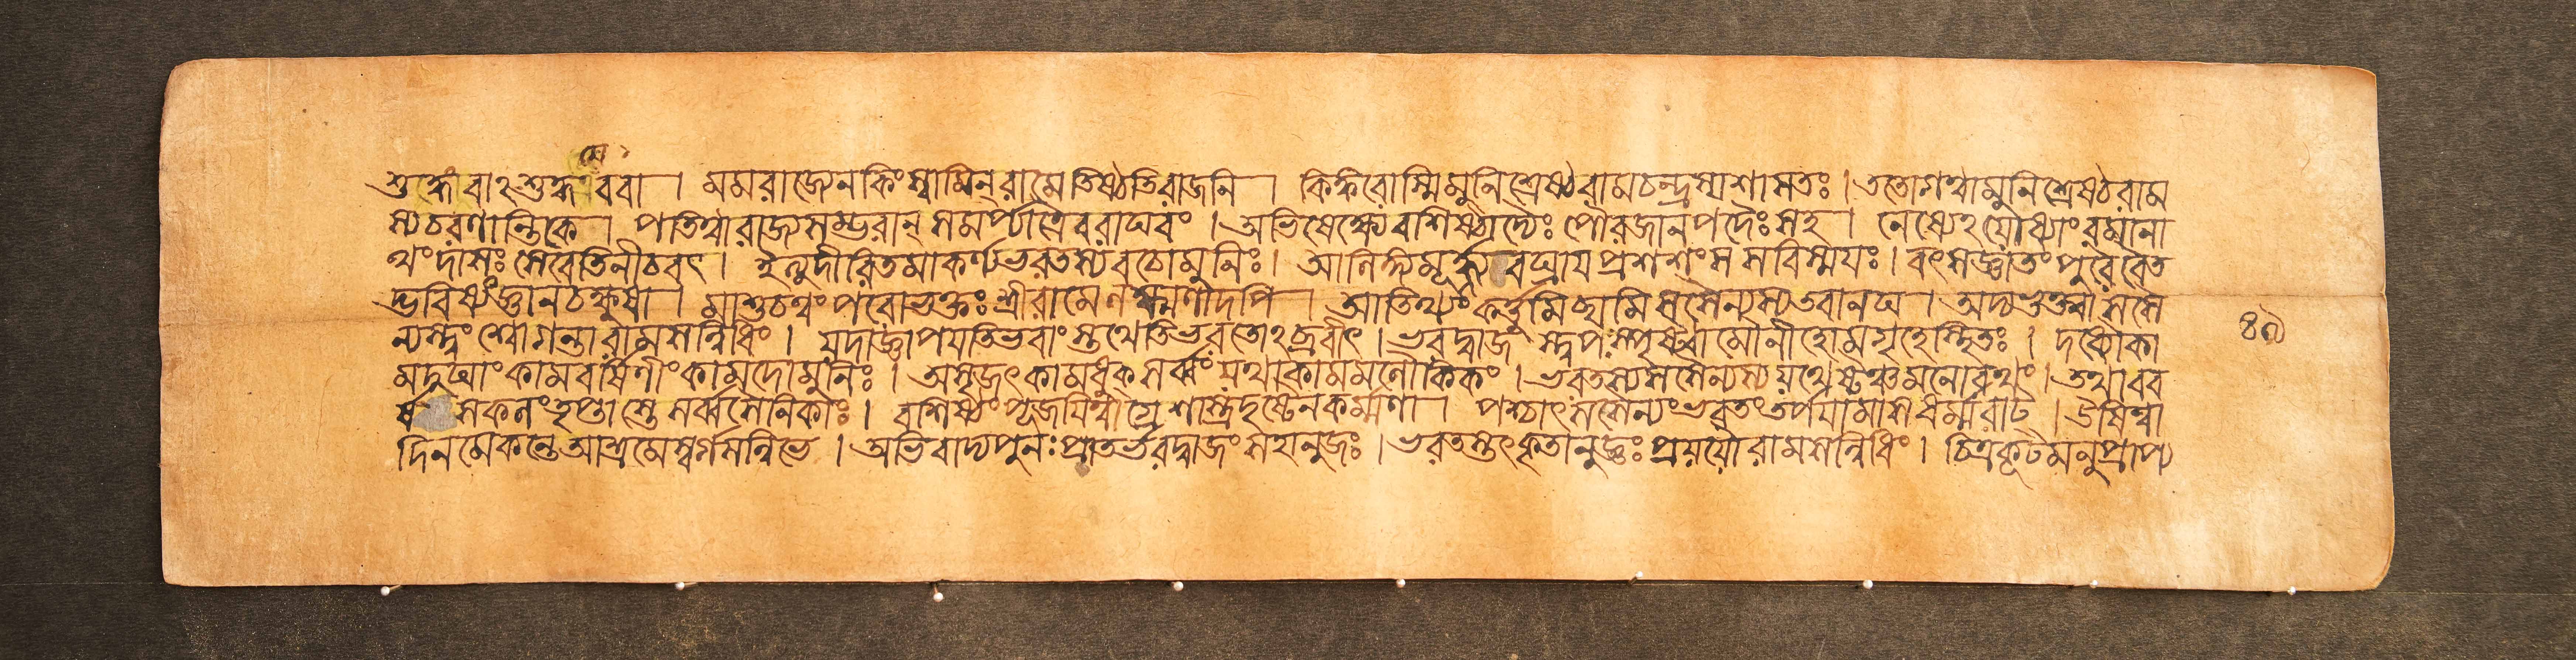 শুদ্ধোবাঽশুদ্ধএববা । মমরাজ্যেনকিংস্বামিন্ রামেতিষ্ঠতিরাজনি । কিঙ্করোস্মিমুনিশ্রেষ্ঠরামচন্দ্রস্যশাসতঃ । ততোগত্বামুনিশ্রেষ্ঠরাম
স্যচরণান্তিকে । পতিত্বারাজ্যসম্ভারান্ সমর্প্যাত্রৈবরাঘবং । অভিষেক্ষ্যেবশিষ্ঠাদ্যৈঃ পৌরজানপদৈঃসহ । নেষ্যেঽযোধ্যাংরমানা
থংদাসঃ সেবেতিনীচবৎ । ইত্যুদীরিতমাকর্ণ্যভরতস্যবচোমুনিঃ । আলিঙ্গ্যমূর্দ্ধ্ন্যবঘ্রায়প্রশশংসসবিস্ময়ঃ । বৎসজ্ঞাতংপুরৈবৈত
দ্ভবিষ্যংজ্ঞানচক্ষুষা । মাশুচত্বংপরোভক্তঃশ্রীরামেলক্ষ্মণাদপি । আতিথ্যংকর্ত্তুমিচ্ছামিসসৈন্যস্যতবানঘ । অদ্যভুক্ত্বাসসৈ
ন্যস্ত্বংশ্বোগন্তারামসন্নিধিং । যদাজ্ঞাপয়তিভবাংস্তথেতিভরতোঽব্রবীৎ । ভরদ্বাজস্ত্বপঃস্পৃষ্ট্বামৌনীহোমগৃহেস্থিতঃ । দধ্যৌকা
মদুঘাংকামবর্ষিণীংকামদোমুনিঃ । অসৃজৎকামধুক্সর্ব্বংযথাকামমলৌকিকং । ভরতস্যসসৈন্যস্যযথেষ্টঞ্চমনোরথং । তথাবব
র্ষসকলংতৃপ্তাস্তেসর্ব্বসৈনিকাঃ । বশিষ্ঠংপূজয়িত্বাগ্রেশাস্ত্রদৃষ্টেনকর্ম্মণা । পশ্চাৎসসৈন্যংভরতংতর্পয়ামাসধর্ম্মরাট্ । উষিত্বা
দিনমেকন্তেআশ্রমেস্বর্গসন্নিভে । অভিবাদ্যপুনঃপ্রাতর্ভরদ্বাজংসহানুজঃ । ভরতস্তৎকৃতানুজ্ঞঃপ্রযযৌরামসন্নিধিং । চিত্রকূটমনুপ্রাপ্য